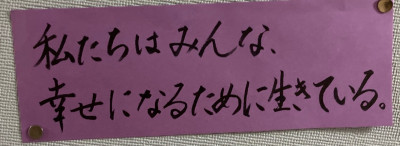 私たちはみんな、
幸せになるために生きている。